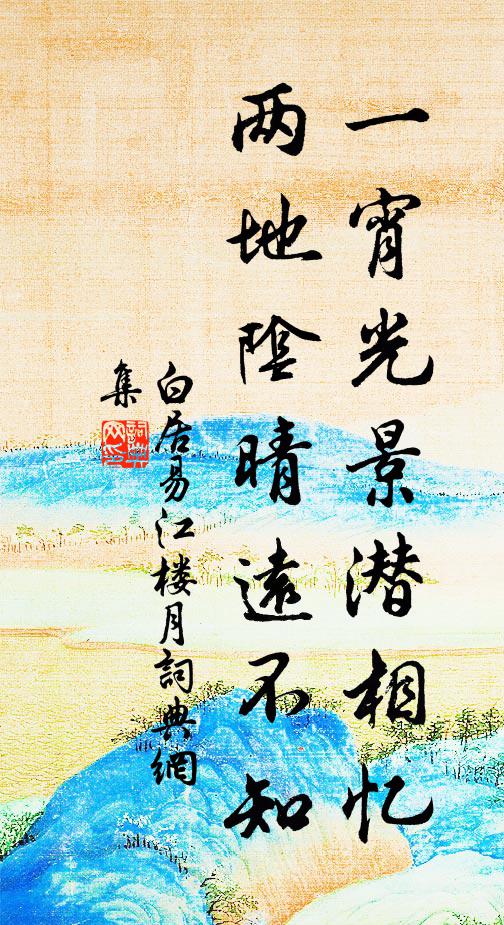 一宵光景潜相忆
两地陰晴遠不知
白居易江楼月詞典網
集